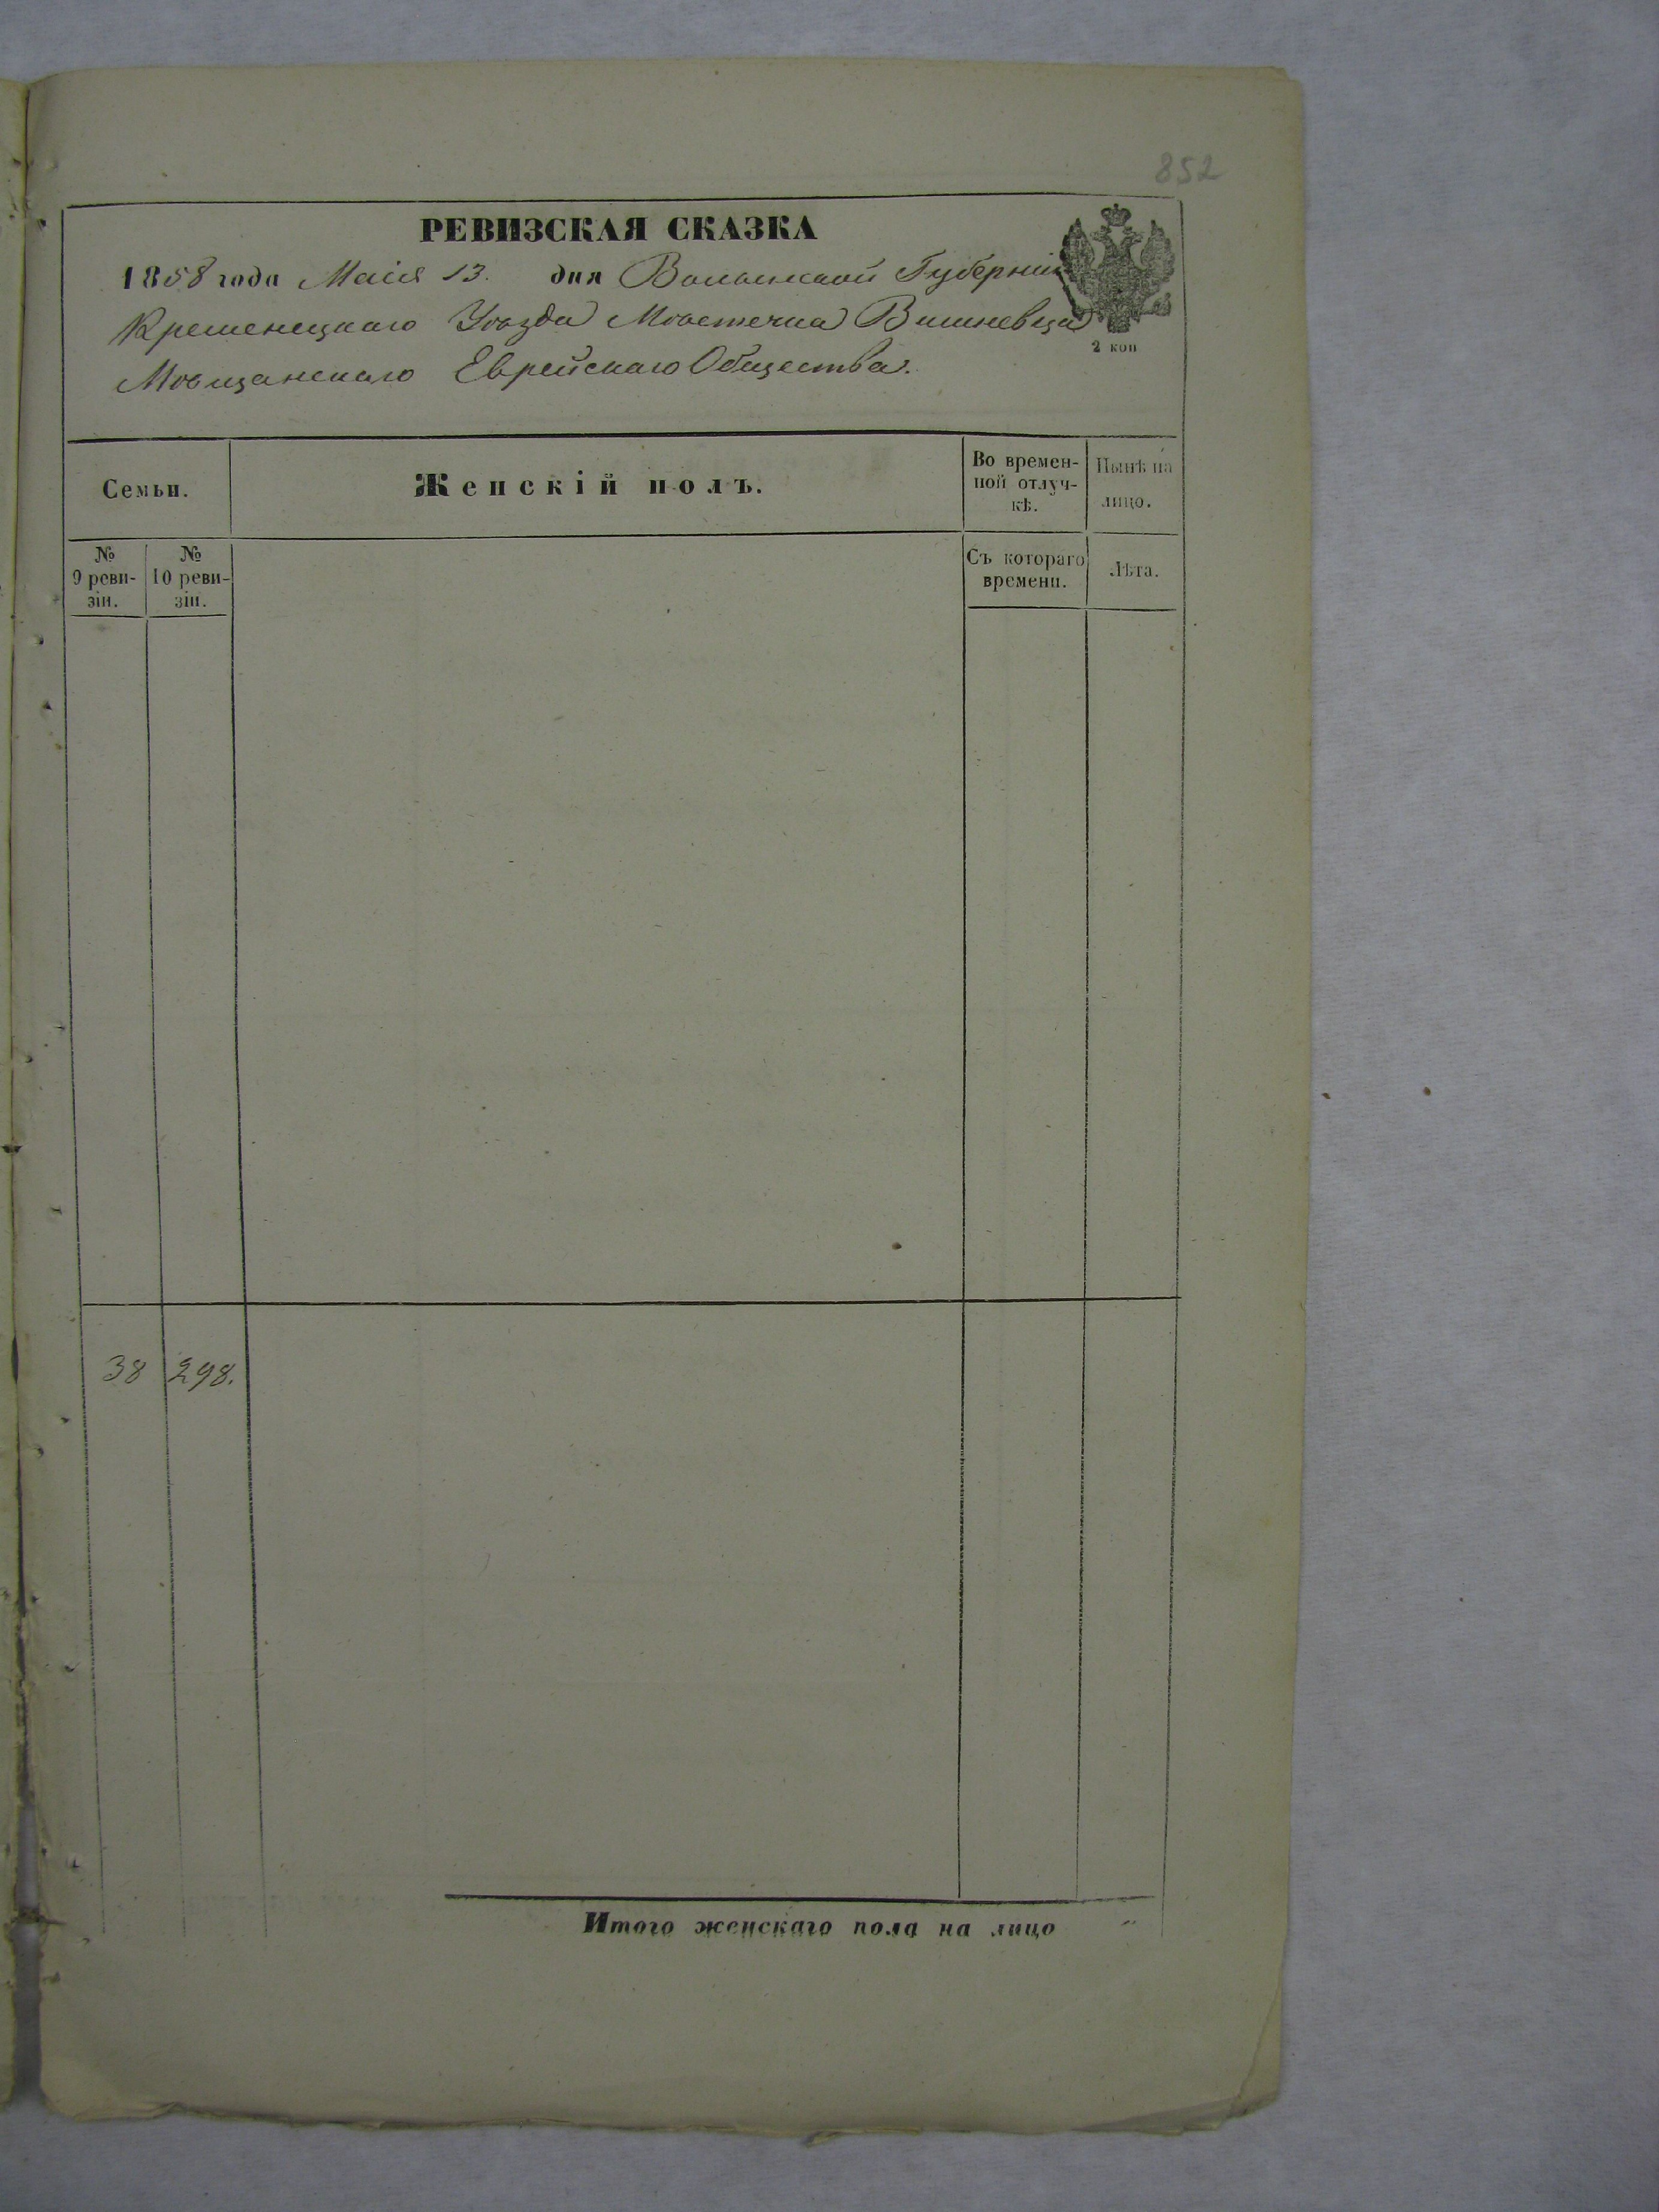 852
РЕВИЗСКАЯ СКАЗКА
1858 года Маія 13. дня Волынской Губерніи
Кременецкаго Уѣзда Мѣстечка Вишневца
2 коп
Мѣщанскаго Еврейскаго Общества.
Семьи.
Женскій полъ.
Во времен-
ной отлуч-
кѣ.
Нынѣ на
лицо.
№
9 реви-
зіи.
№
10 реви-
зіи.
Съ котораго
времени.
Лѣта.
38 298.
Итого женскаго пола на лицо "